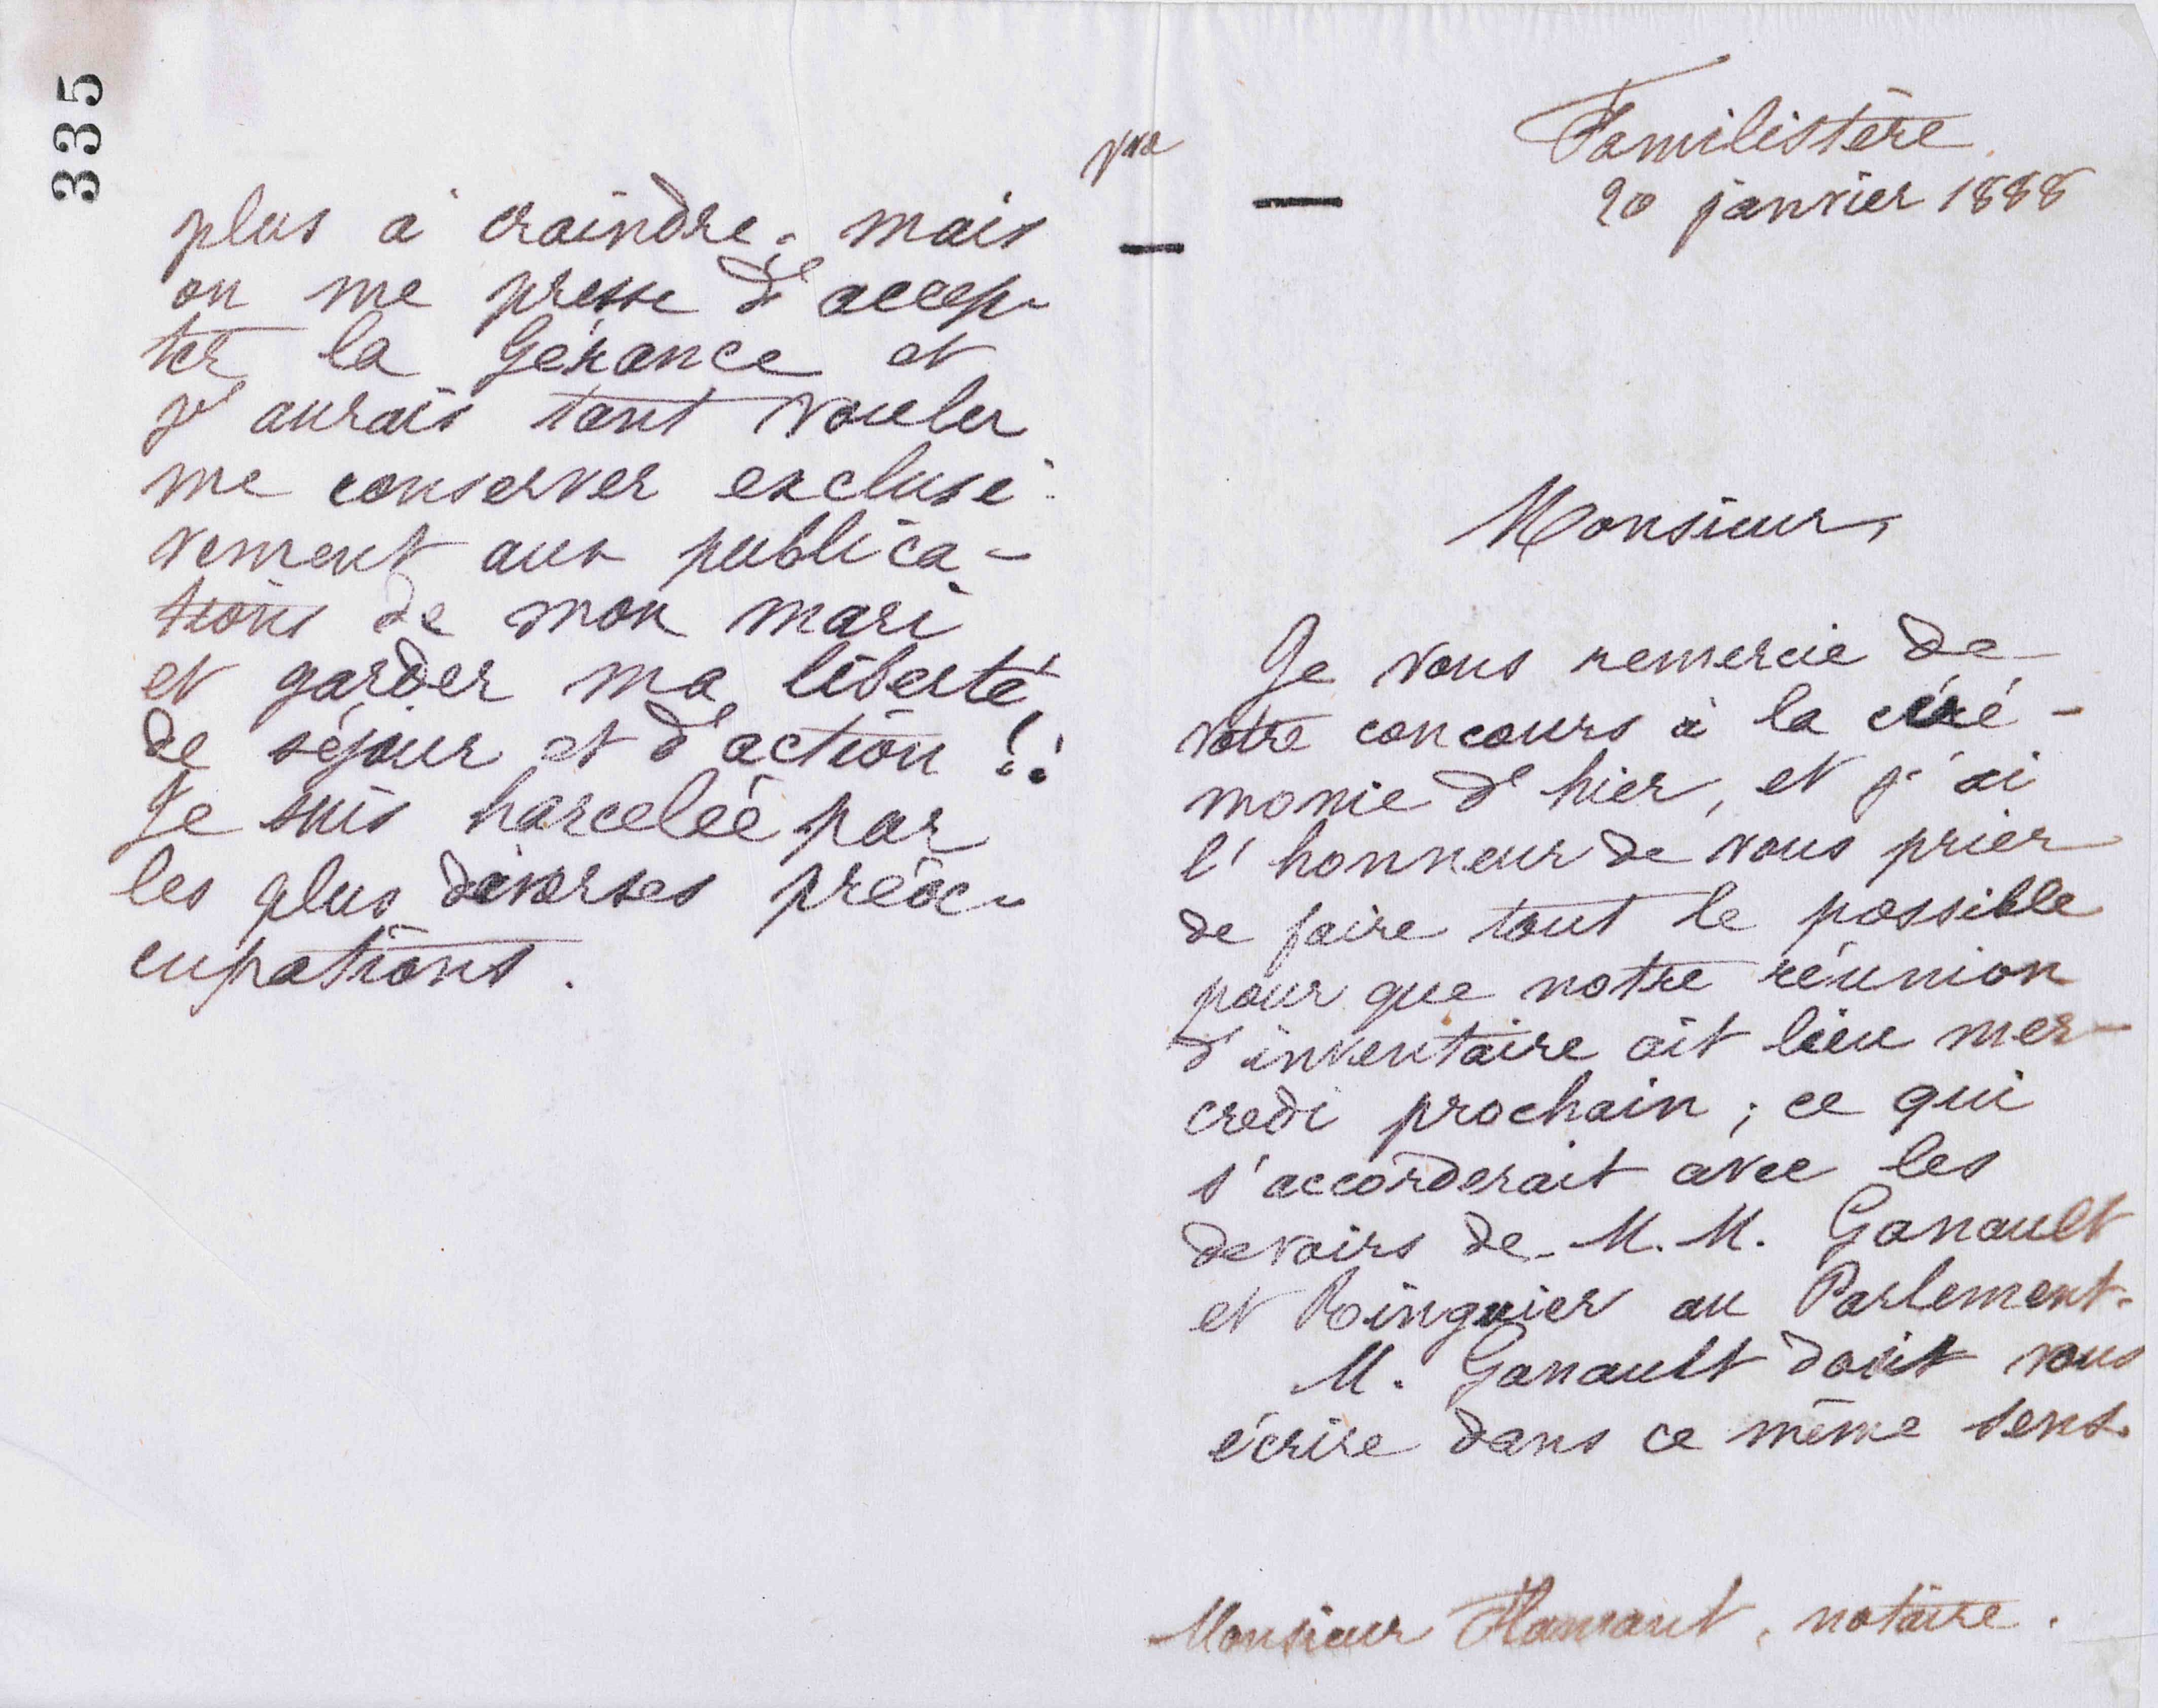 335
plus à craindre, mais
on me presse d'accep-
ter la Gérance et
j'aurais tant voulu
me conserver exclusi-
vement aux publica-
tions de mon mari
et garder ma liberté
de séjour et d'action !!
Je suis harcelée par
les plus diverses préoc-
cupations.
Familistère
20 janvier 1888
Monsieur,
Je vous remercie de
votre concours à la céré-
monie d'hier, et j'ai
l'honneur de vous prier
de faire tout le possible
pour que notre réunion
d'inventaire ait lieu mer-
credi prochain ; ce qui
s'accorderait avec les
devoirs de M. M. Ganault
et Ringuier au Parlement.
M. Ganault doit vous
écrire dans ce même sens.
Monsieur Flamant, notaire.